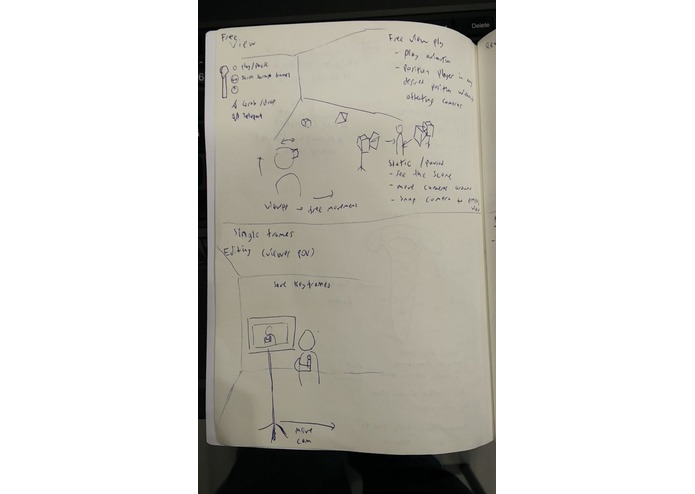 Free
View
Play/Pause
Grab/drop
Teleport
viewer → free movement
Free view play
- play animation
- position player in any
desired position without
affecting cameras
Static / paused
- see the scene
- move cameras around
- snap camera to
view
Single frames
Editing (viewer POV)
Save Keyframes
Move
cam
Delete